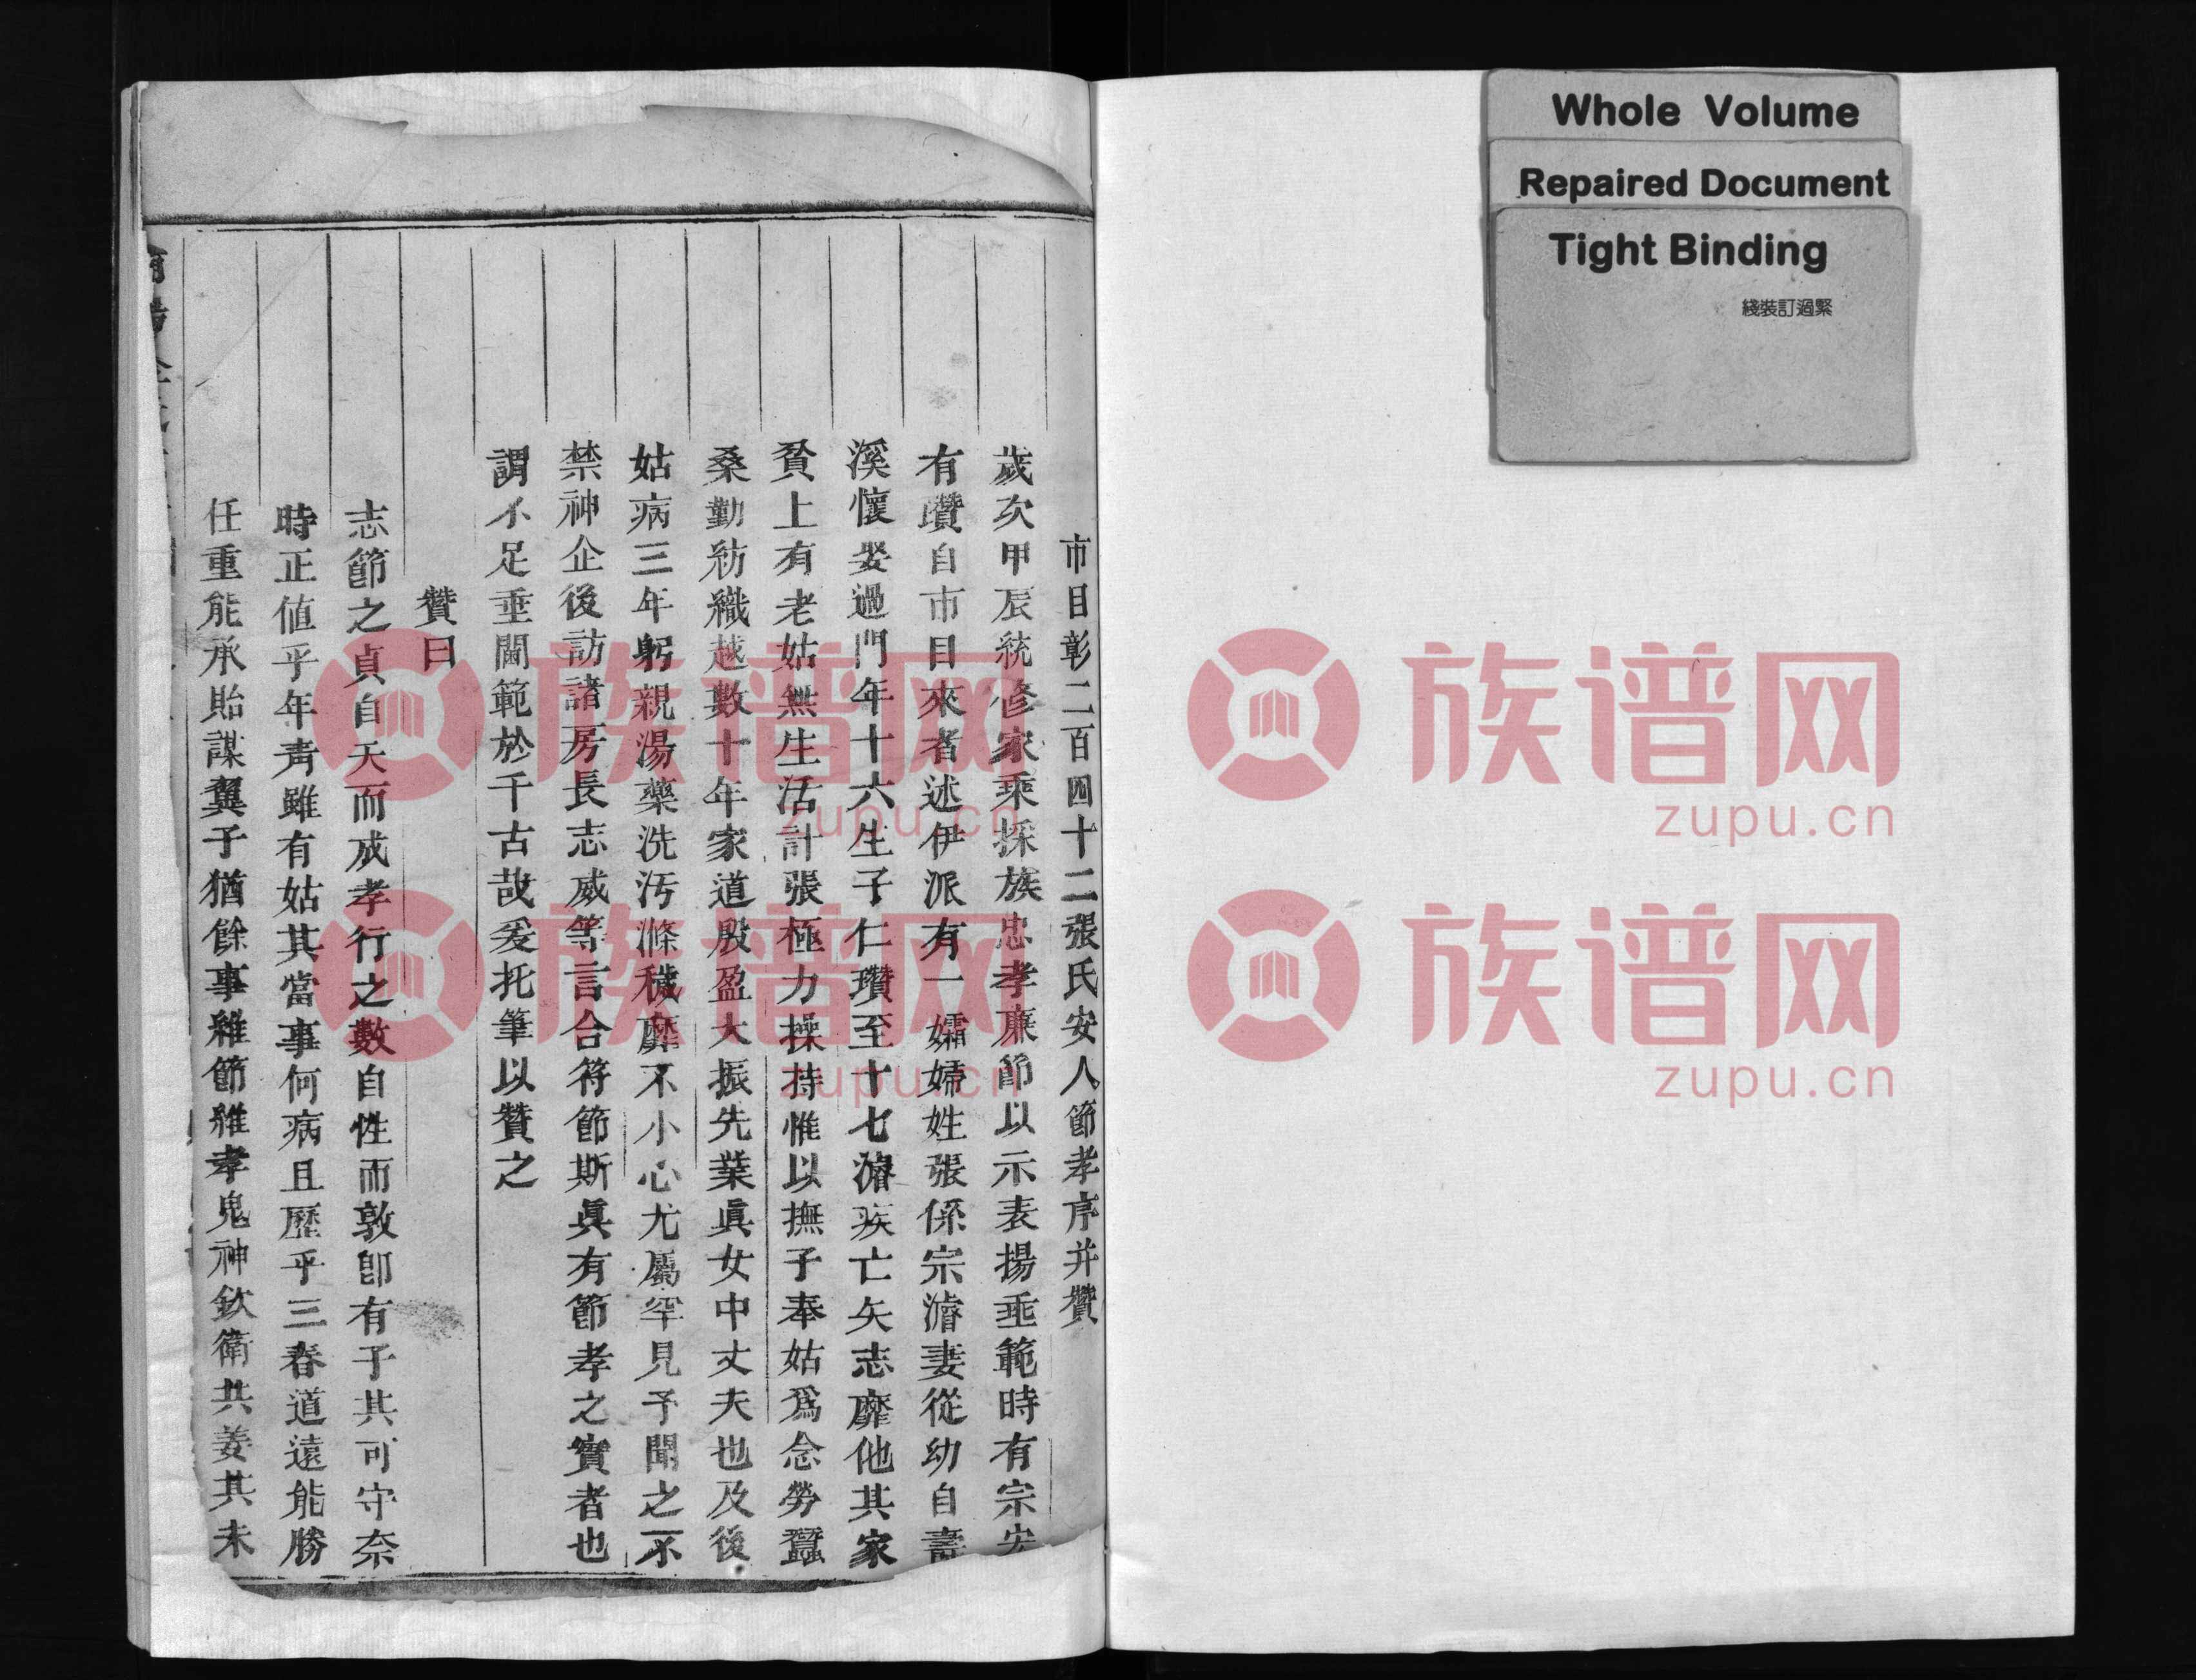 Whole Volume
Repaired Document
Tight Binding
綫裝訂過緊
市目彰二百四十二張氏安人節孝序并贊
歲次甲辰統修家乘採族忠孝廉節以示表揚垂範時有宗安
有瓚自市目來者述伊派有一孀婦姓張係宗濬妻從幼自壽
溪懷娶過門年十六生子仁瓚至十七濬疾亡矢志靡他其家
貧上有老姑無生活計張極力操持惟以撫子奉姑爲念勞蠶
桑勤紡織越數十年家道殷盈大振先業眞女中丈夫也及後
姑病三年躬親湯藥洗污滌穢靡不小心尤屬罕見予聞之不
禁神企後訪諸房長志威等言合符節斯眞有節孝之實者也
謂不足垂閫範於千古哉爰托筆以贊之
贊曰
志節之貞自天而成孝行之數自性而敦卽有子其可守奈
時正值乎年青雖有姑其當事何病且歷乎三春道遠能勝
任重能承貽謀翼子猶餘事雖節雖孝鬼神欽衛共姜其未
族谱网
zupu.cn
族谱网
zupu.cn
族谱网
zupu.cn
族谱网
zupu.cn